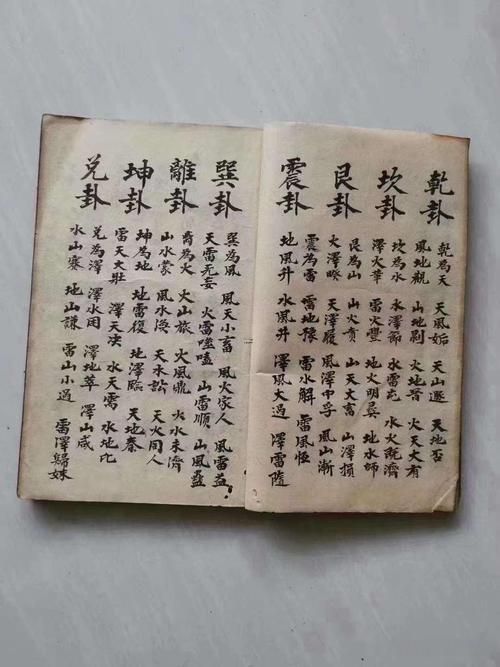 乾卦
乾為天 天風姤 天山遯 天地否
風地觀 山地剝 火地晋 火天大有
坎卦
坎為水 水澤節 水雷屯 水火既濟
澤火革 雷火豐 地火明夷 地水師
艮卦
艮為山 山火賁 山天大畜 山澤損
火澤睽 天澤履 風澤中孚 風山漸
震卦
震為雷 雷地豫 雷水解 雷風恒
地風升 水風井 澤風大過 澤雷隨
巽卦
巽為風 風天小畜 風火家人 風雷益
天雷无妄 火雷噬嗑 山雷順 山風益
離卦
离為火 火山旅 火風鼎 火水未濟
山水蒙 風水渙 天水訟 天火同人
坤卦
坤為地 地雷復 地澤臨 地天泰
雷天大壯 澤天夬 水天需 水地比
兌卦
兌為澤 澤水困 澤地萃 澤山咸
水山蹇 地山謙 雷山小過 雷澤歸妹